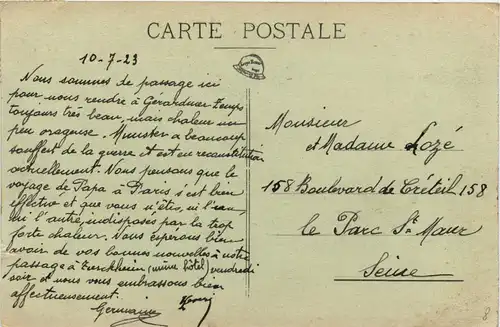 CARTE POSTALE
10-7-23
Nous sommes de passage ici
pour nous rendre à Gérardmer temps
toujours très beau, mais chaleur un
peu orageuse. Munster a beaucoup
souffert de la guerre et est en reconstitution
actuellement. Nous pensons que le
voyage de Papa à Paris s'est bien
effectué et que vous n'êtes, ni l'un,
ni l'autre, indisposés par la trop
forte chaleur. Nous espérons bien
avoir de vos bonnes nouvelles à notre
passage à Turckheim (même hôtel) vendredi
soir et nous vous embrassons bien
affectueusement.
Germaine
Monsieur
et Madame Lozé
158 Boulevard de Créteil 158
le Parc St Maur
Seine
8